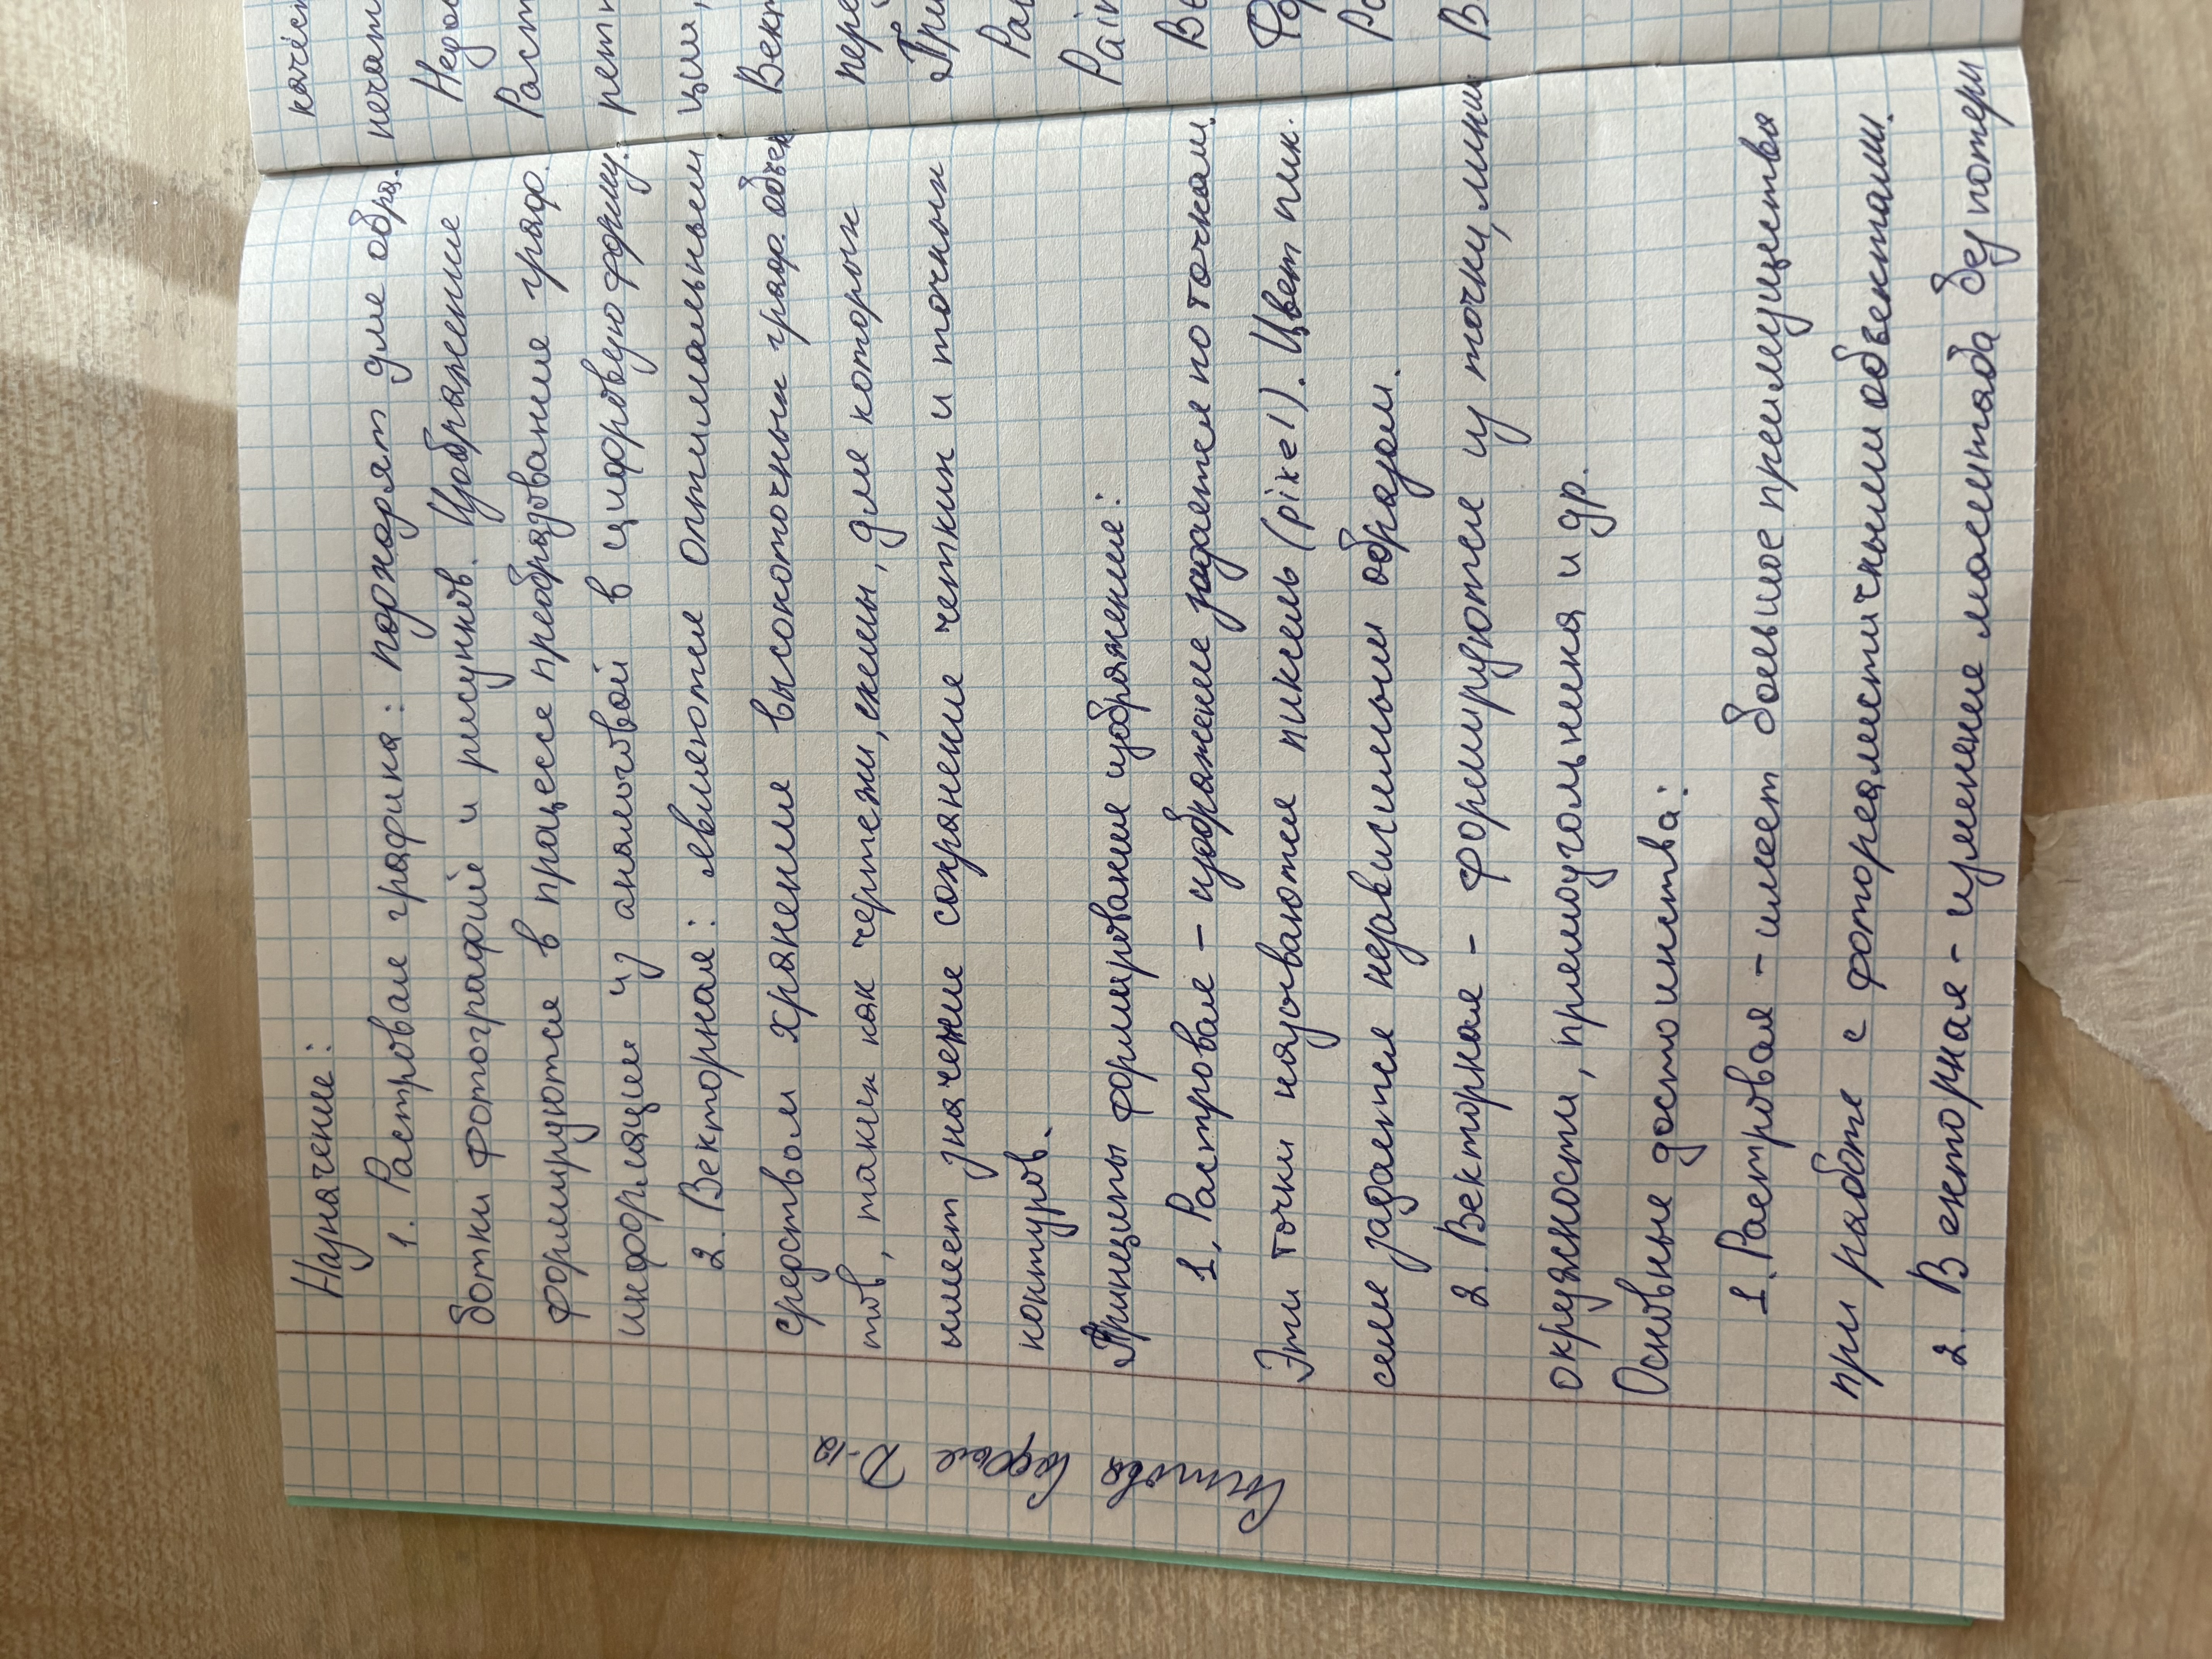 Назначение:
1. Растровая графика: подходят для обра-
ботки фотографий и рисунков. Изображение
формируются в процессе преобразование граф.
информации из аналоговой в цифровую форму.
2. Векторная: являются оптимальным
средством хранения высокоточных граф. объек
тов, таких как чертежи, схемы, для которых
имеет значение сохранение четких и точных
контуров.
Принципы формирования изображения:
1. Растровая – изображение задается по точкам.
Эти точки называются пиксель (pixel). Цвет пик.
селя задается независимым образом.
2. Векторная – формируются из точки, линии
окружности, прямоугольника и др.
Основные достоинства:
1. Растровая – имеет большое преимущества
при работе с фотореалистичными объектами.
2. Векторная – изменение масштаба без потери
Д-12
качест
печат
Недос
Раст
рети
ции,
Вект
пере
При
Рас
Pain
Ве
Фор
Ра
В